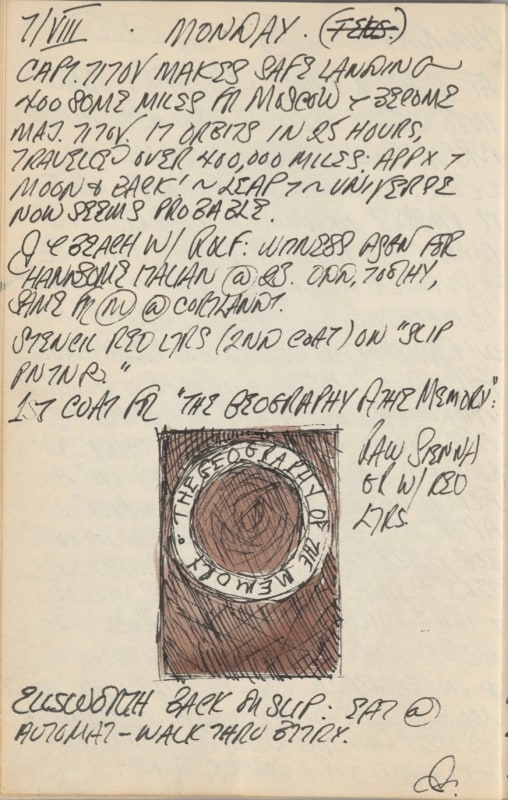 7/VIII · MONDAY. (TUES.)
CAPT. TITOV MAKES SAFE LANDING
400 SOME MILES FR MOSCOW & BECOME
MAJ. TITOV. 17 ORBITS IN 25 HOURS,
TRAVELED OVER 400,000 MILES: APPX T
MOON & BACK! ~ LEAP T ~ UNIVERSE
NOW SEEMS PROBABLE.
BEACH W/ ROLF: WITNESS AGEN FOR
HANDSOME ITALIAN @ 28. ODD, TOOTHY,
SAME FR (M) @ CORTLANDT.
STENCIL RED LTRS (2ND COAT) ON "SLIP
PNTNG."
1ST COAT FR "THE GEOGRAPHY OF THE MEMORY":
RAW SIENNA
GR W/ RED
LTRS.
THE GEOGRAPHY OF THE MEMORY
ELLSWORTH BACK ON SLIP: EAT @
AUTOMAT – WALK THRU BTTRY.